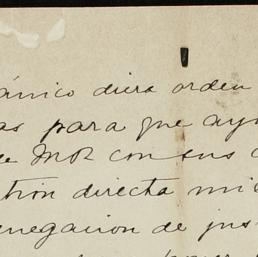 ánico diera orden
as para que ayu
de Mor con sus
tión directa mi
enegacion de jus